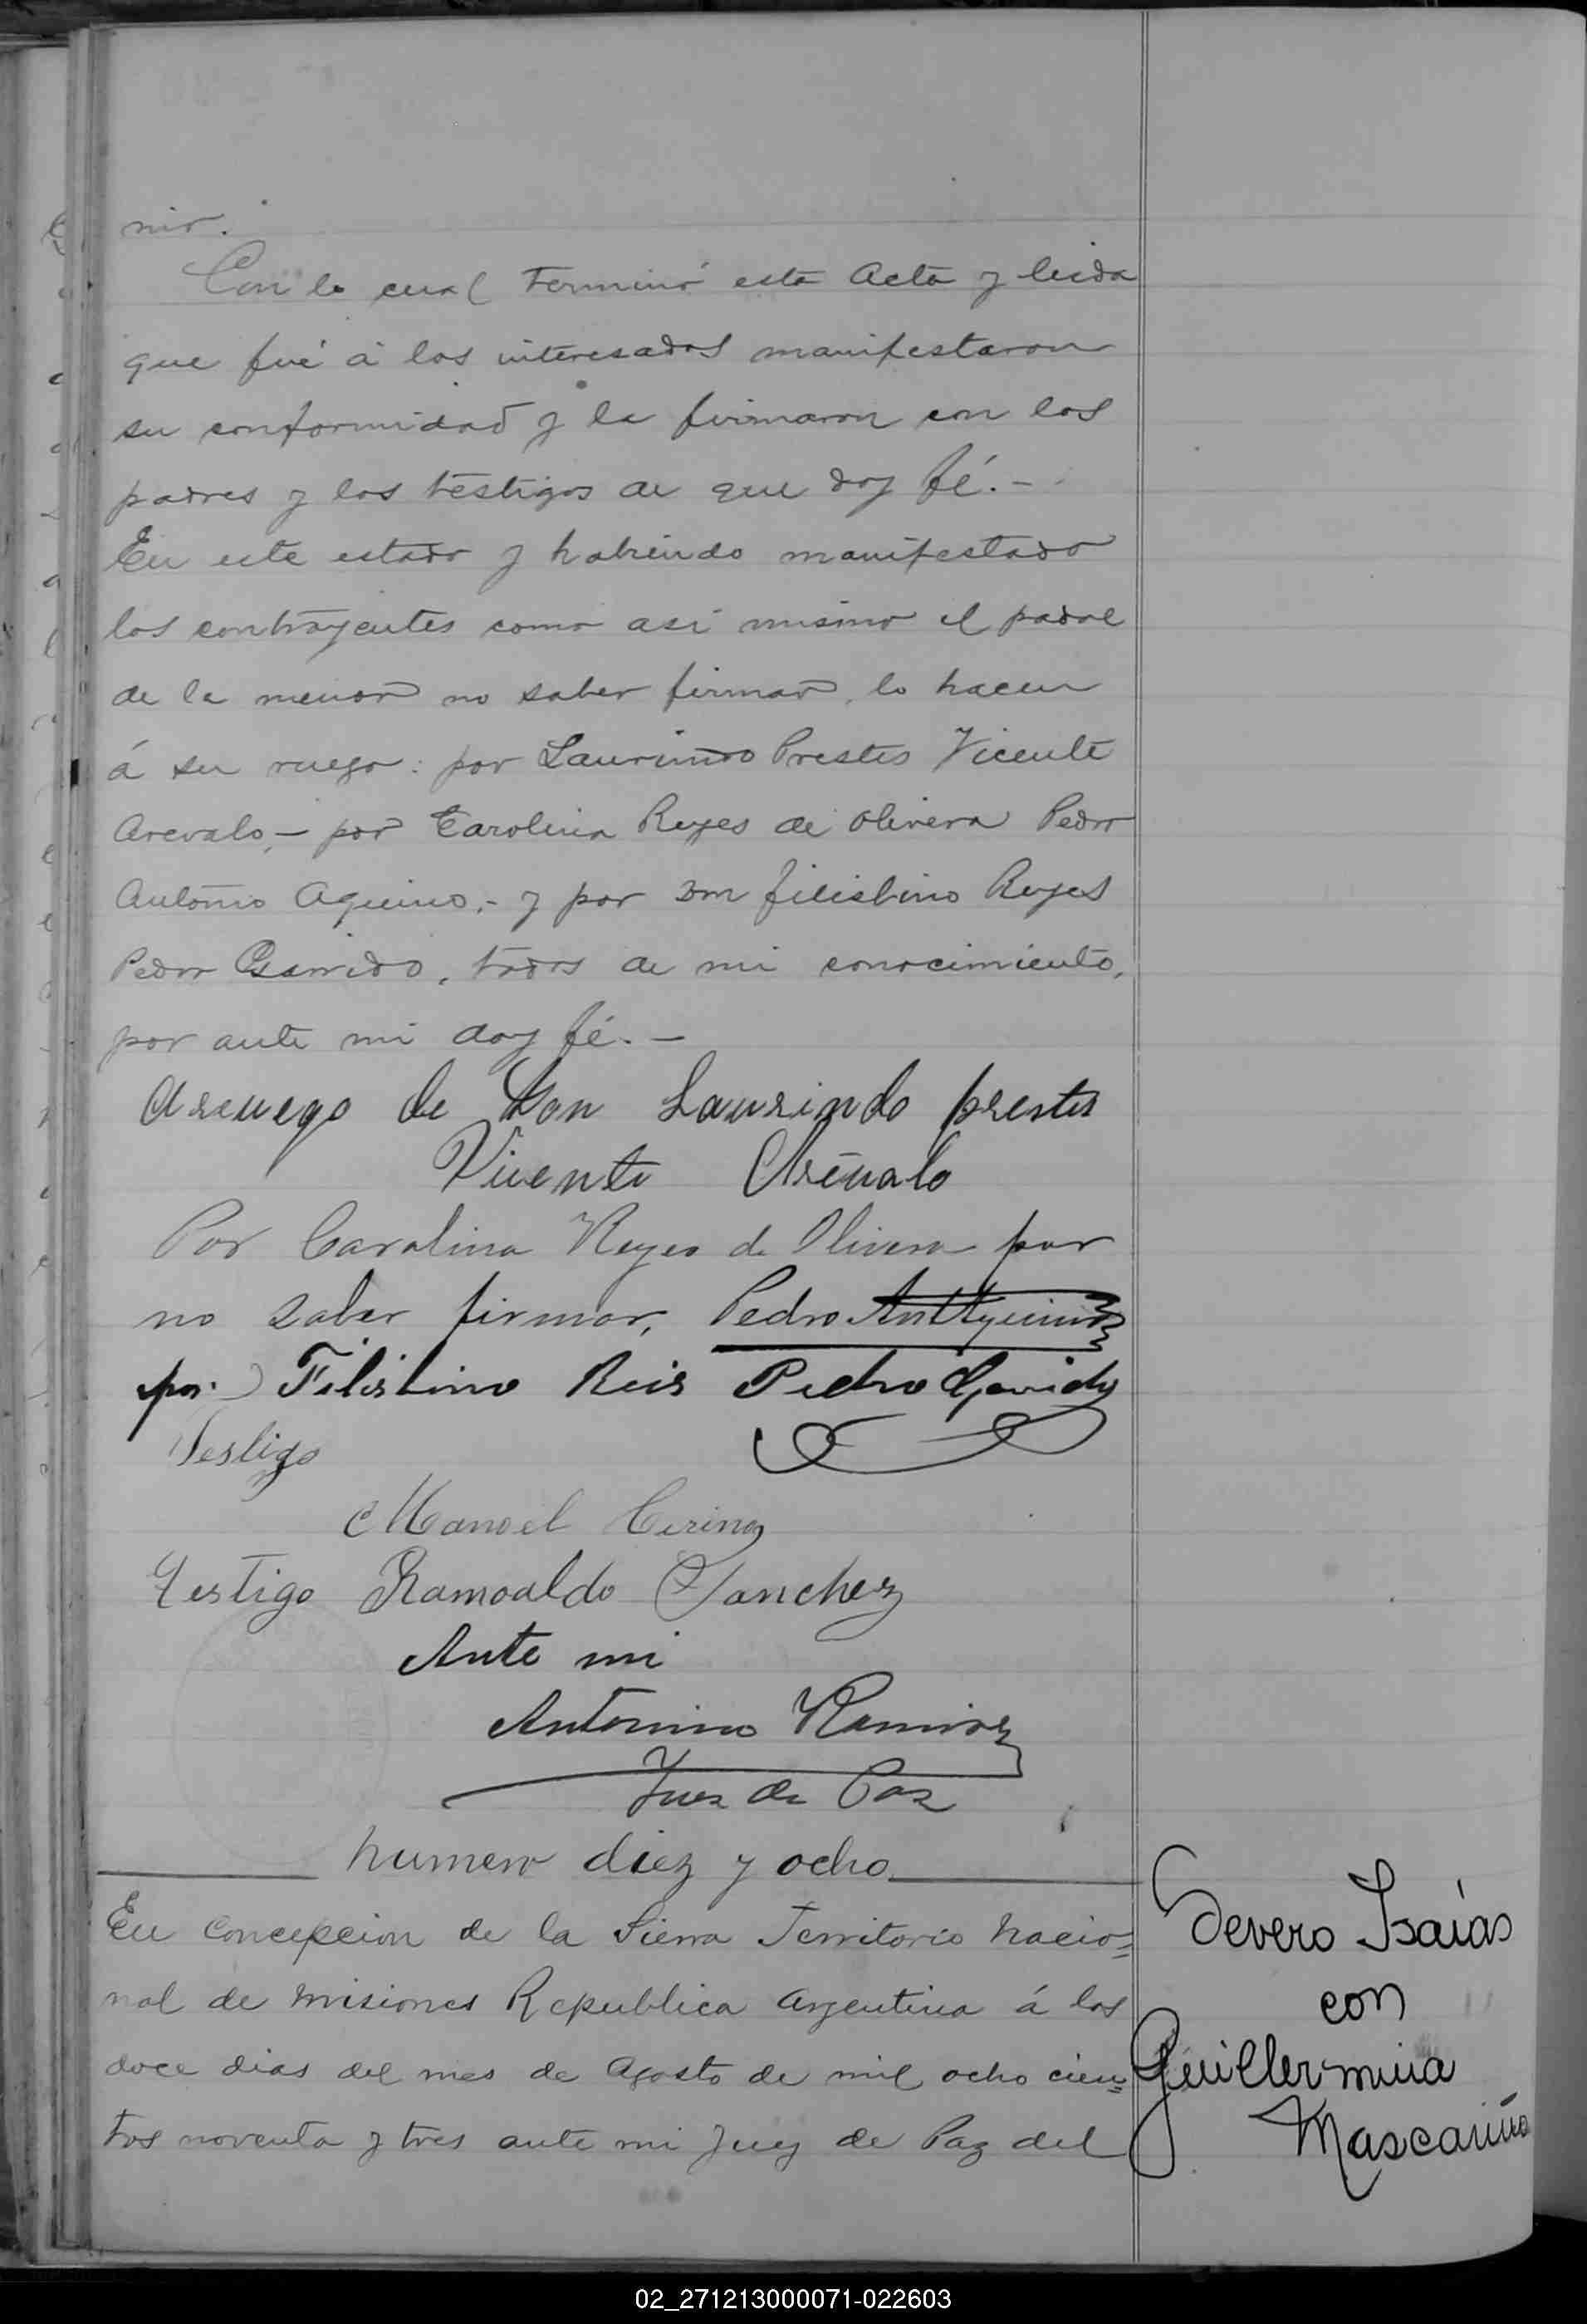 nir.
Con lo cual terminó esta Acta y leida
que fué á los interesados manifestaron
su conformidad y la firmaron con los
padres y los testigos de que doy fé.-
En este estado y habiendo manifestado
los contrayentes como asi mismo el padre
de la menor no saber firmar, lo hacen
á su ruego: por Laurindo Prestes Vicente
Arevalo,- por Carolina Reyes de Olivera Pedro
Antonio Aquino,- y por Don Filisbino Reyes
Pedro Garrido, todos de mi conocimiento,
por ante mi doy fé.-
Arruego de Don Laurindo prestes
Vicente Arévalo
Por Carolina Reyes de Olivera por
no saber firmar, Pedro Ant Aquino
por Filisbino Reis Pedro Garrido
Testigo
Manoel
Testigo Ramoaldo Sanchez
Ante mi
Antonino Ramirez
Juez de Paz
Numero diez y ocho
En Concepcion de la Sierra Territorio Nacio=
nal de Misiones Republica Argentina á los
doce dias del mes de Agosto de mil ocho cien=
tos noventa y tres ante mi Juez de Paz del
Severo Isaías
con
Guillermina
Mascariño
02_271213000071-022603